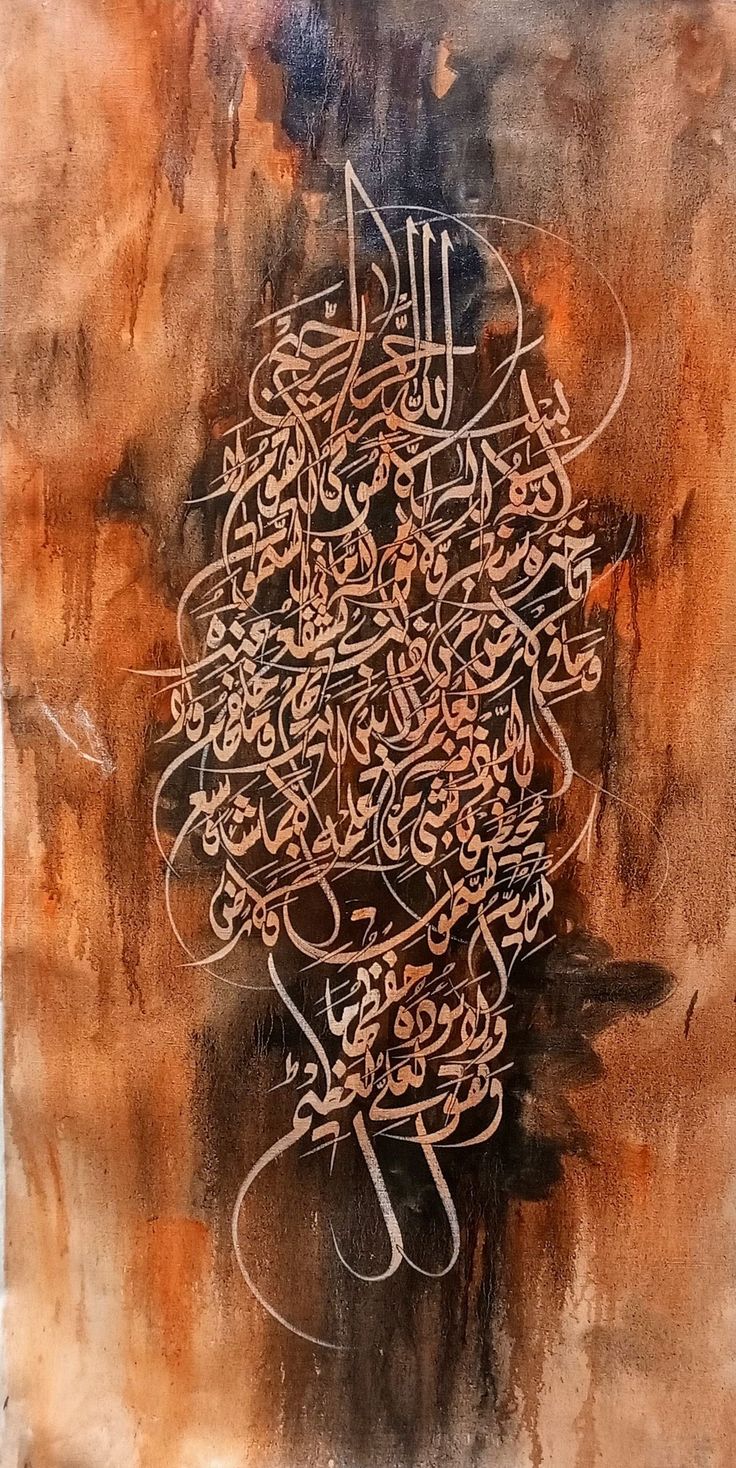 بسم الله الرحمن الرحيم
الله لا إله إلا هو الحي القيوم لا
تأخذه سنة ولا نوم له ما في السموات
وما في الأرض من ذا الذي يشفع عنده
إلا بإذنه يعلم ما بين أيديهم وما خلفهم ولا
يحيطون بشيء من علمه إلا بما شاء وسع
كرسيه السموات والأرض
ولا يؤده حفظهما
وهو العلي العظيم